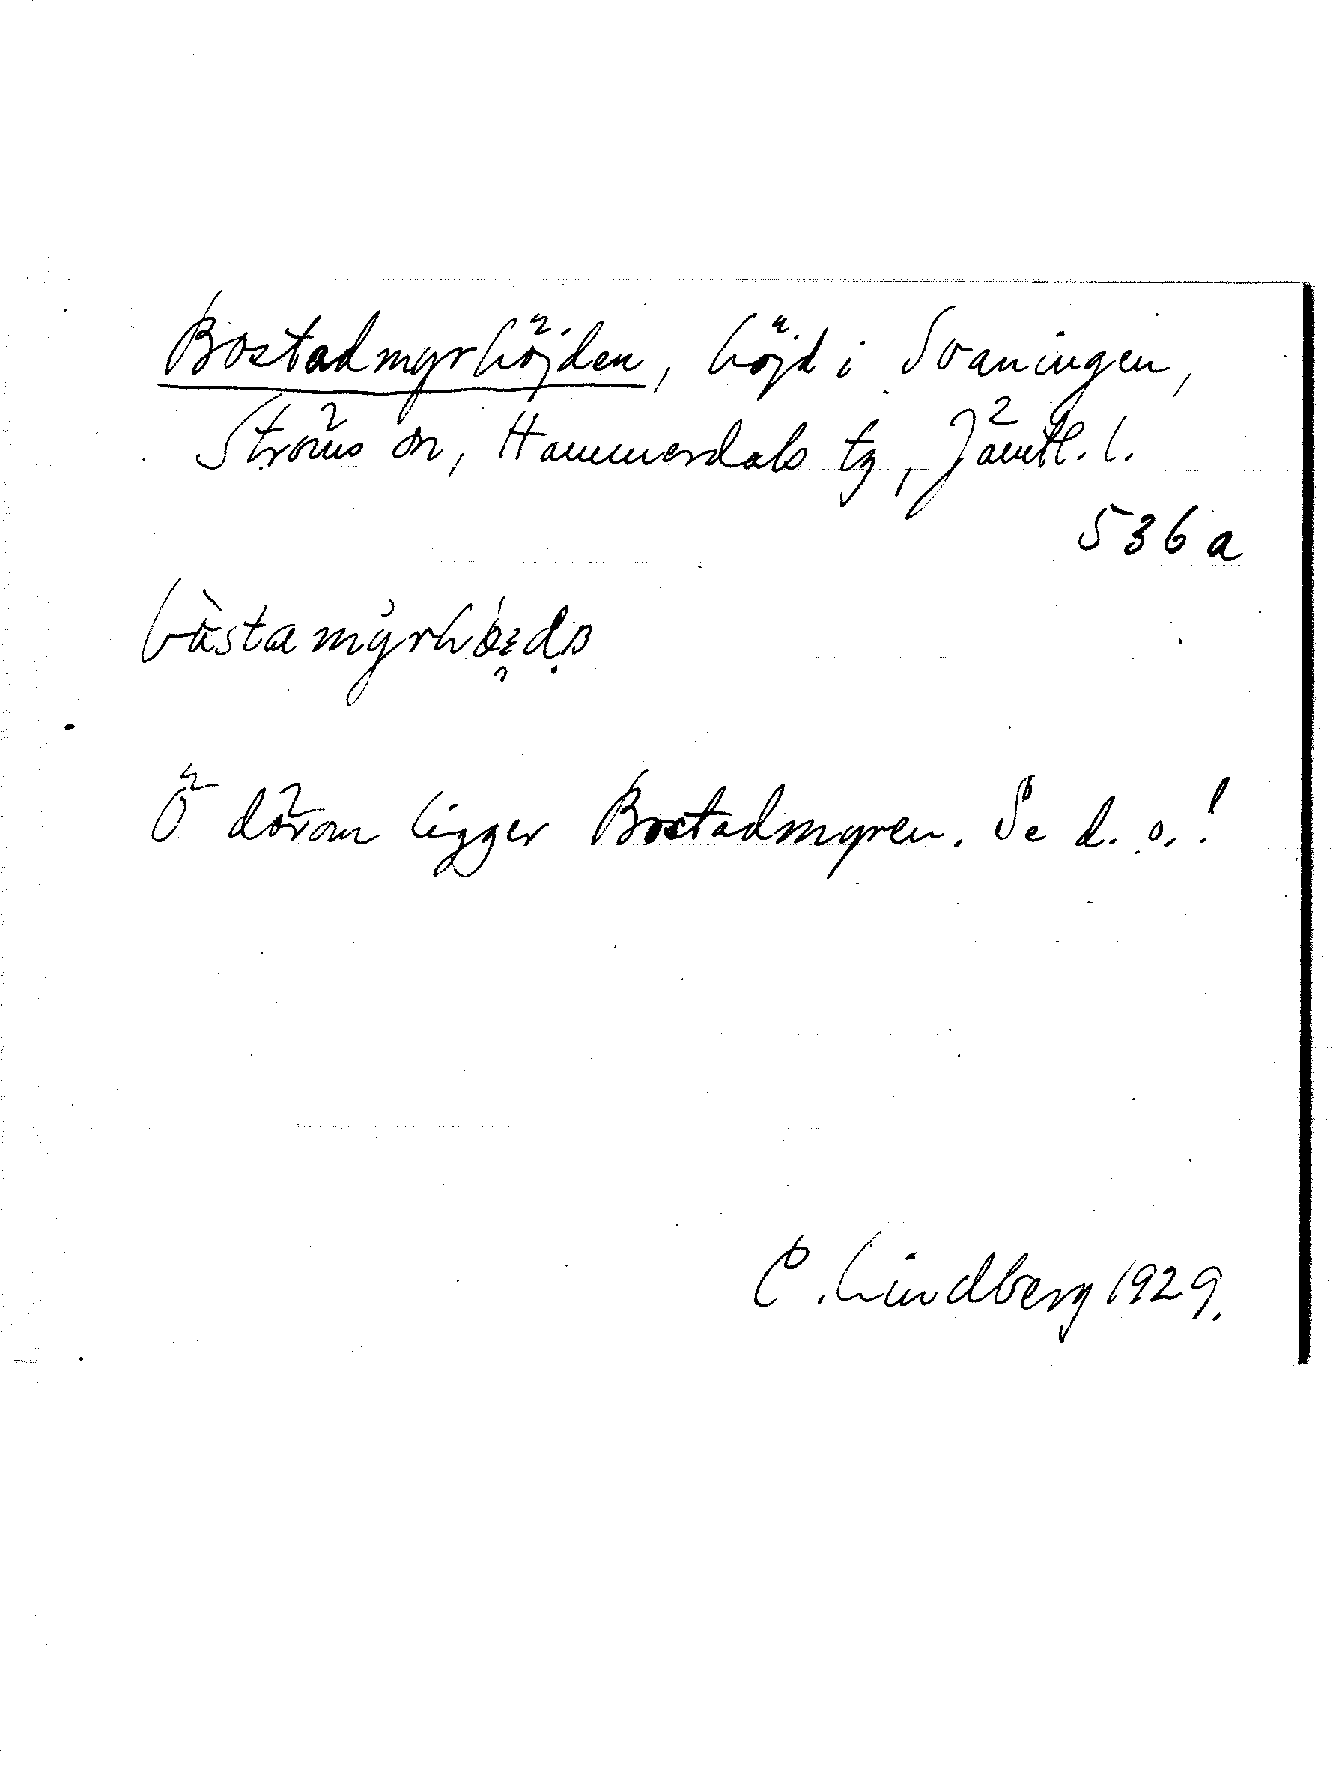 Bostadmyrhöjden, höjd i Svaningen,
Ströms sn, Hammerdals tg, Jämtl. l.
536 a
Ö därom ligger Bostadmyren. Se d. o.!
C. Lindberg 1929.